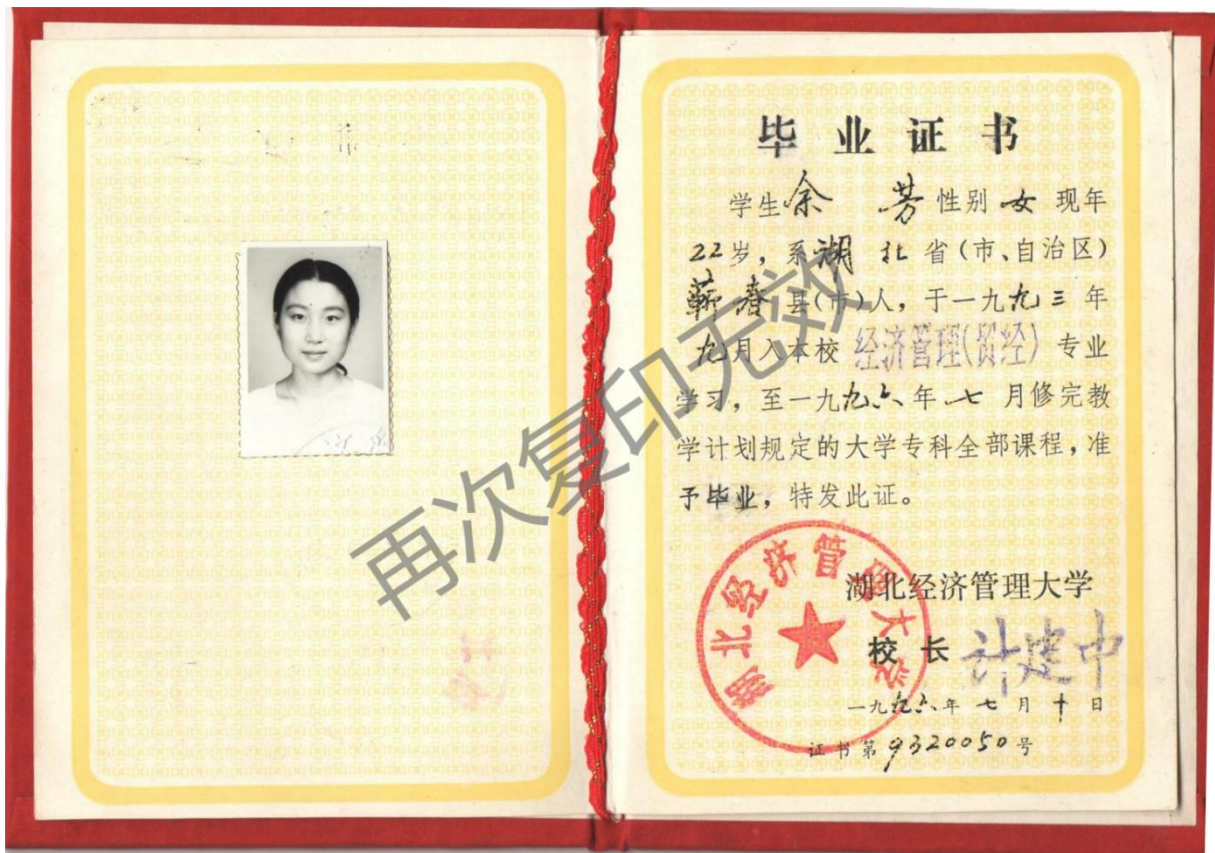 毕业证书
学生余 芳性别女现年
22岁，系湖北省(市、自治区)
蕲春县(市)人，于一九九三年
九月入本校经济管理(贸经)专业
学习，至一九九六年七月修完教
学计划规定的大学专科全部课程，准
予毕业，特发此证。
湖北经济管理大学
湖北经济管理大学
校长 计建中
一九九六年七月十日
证书第9320050号
再次复印无效